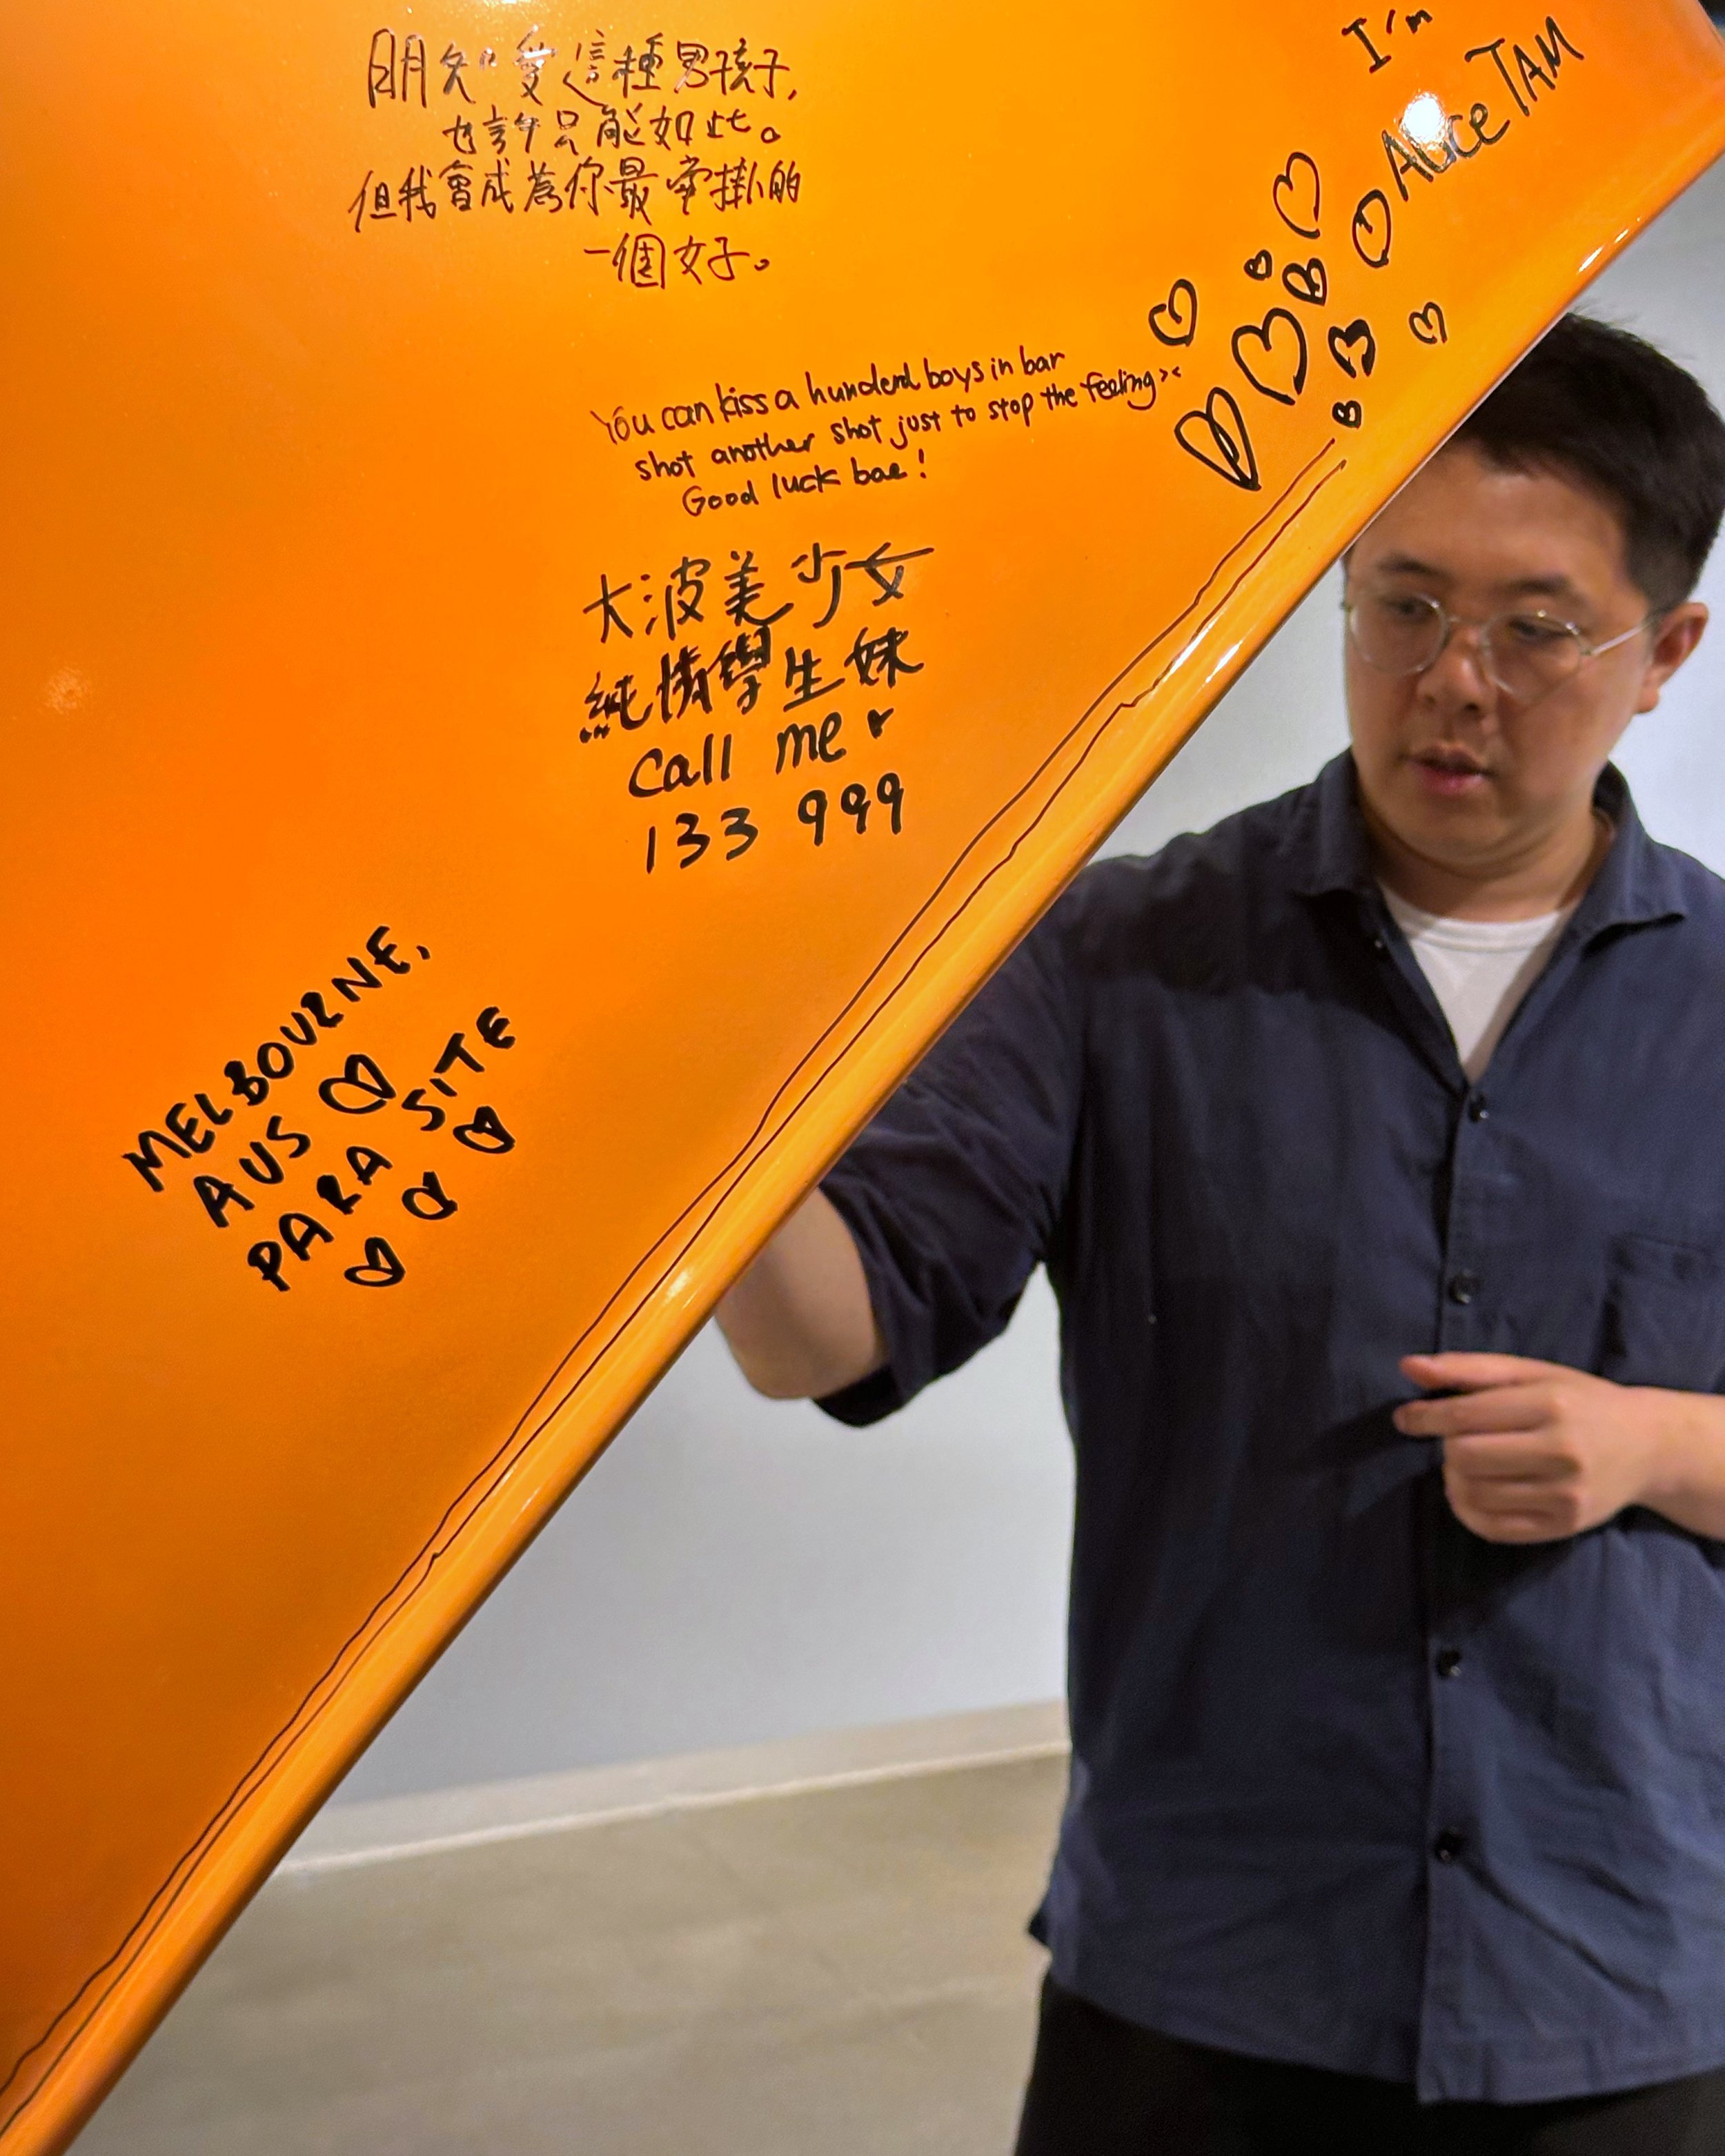 明知愛這種男孩子,
也許只能如此。
但我會成為你最牽掛的
一個女子。
I'm
Alice TAM
You can kiss a hunderd boys in bar
shot another shot just to stop the feeling ><
Good luck bae!
大波美少女
純情學生妹
Call me
133 999
MELBOURNE,
AUS
PARA SITE